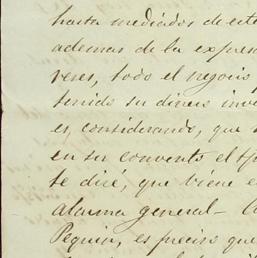 hasta mediados de este
ademas de la expres
veres, todo el negocio
tenido su dinero inve
es, considerando, que
en su convento el
te diré, que viene e
alarma general - C
Pequin, es preciso que